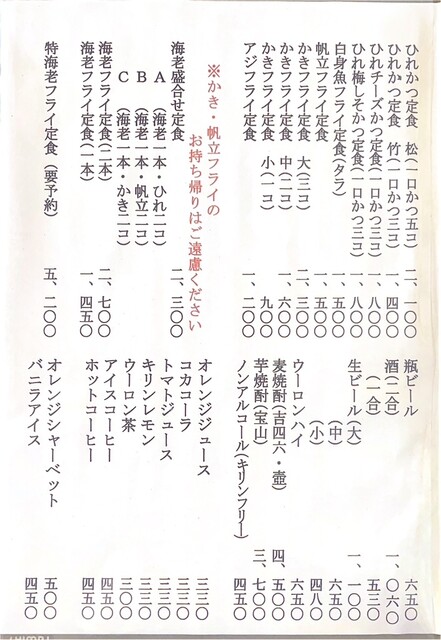 ひれかつ定食　松(一口かつ五コ)　二、一〇〇
ひれかつ定食　竹(一口かつ三コ)　一、四〇〇
ひれチーズかつ定食(一口かつ三コ)　一、八〇〇
ひれ梅しそかつ定食(一口かつ三コ)　一、八〇〇
白身魚フライ定食(タラ)　一、五〇〇
帆立フライ定食　一、五〇〇
かきフライ定食　大(三コ)　二、三〇〇
かきフライ定食　中(二コ)　一、六〇〇
かきフライ定食　小(一コ)　九〇〇
アジフライ定食　一、二〇〇
※かき・帆立フライの
お持ち帰りはご遠慮ください
海老盛合せ定食　二、三〇〇
A　(海老一本・ひれ二コ)
B　(海老一本・帆立二コ)
C　(海老一本・かき二コ)
海老フライ定食(二本)　二、七〇〇
海老フライ定食(一本)　一、四五〇
特海老フライ定食(要予約)　五、二〇〇
瓶ビール　六五〇
酒(二合)　一、〇六〇
(一合)　五三〇
生ビール(大)　一、一〇〇
(中)　六五〇
(小)　四八〇
ウーロンハイ　六五〇
麦焼酎(吉四六・壺)　四、五〇〇
芋焼酎(宝山)　三、七〇〇
ノンアルコール(キリンフリー)　四五〇
オレンジジュース　三三〇
コカコーラ　三三〇
トマトジュース　三三〇
キリンレモン　三三〇
ウーロン茶　三〇〇
アイスコーヒー　四五〇
ホットコーヒー　四五〇
オレンジシャーベット　五〇〇
バニラアイス　四五〇